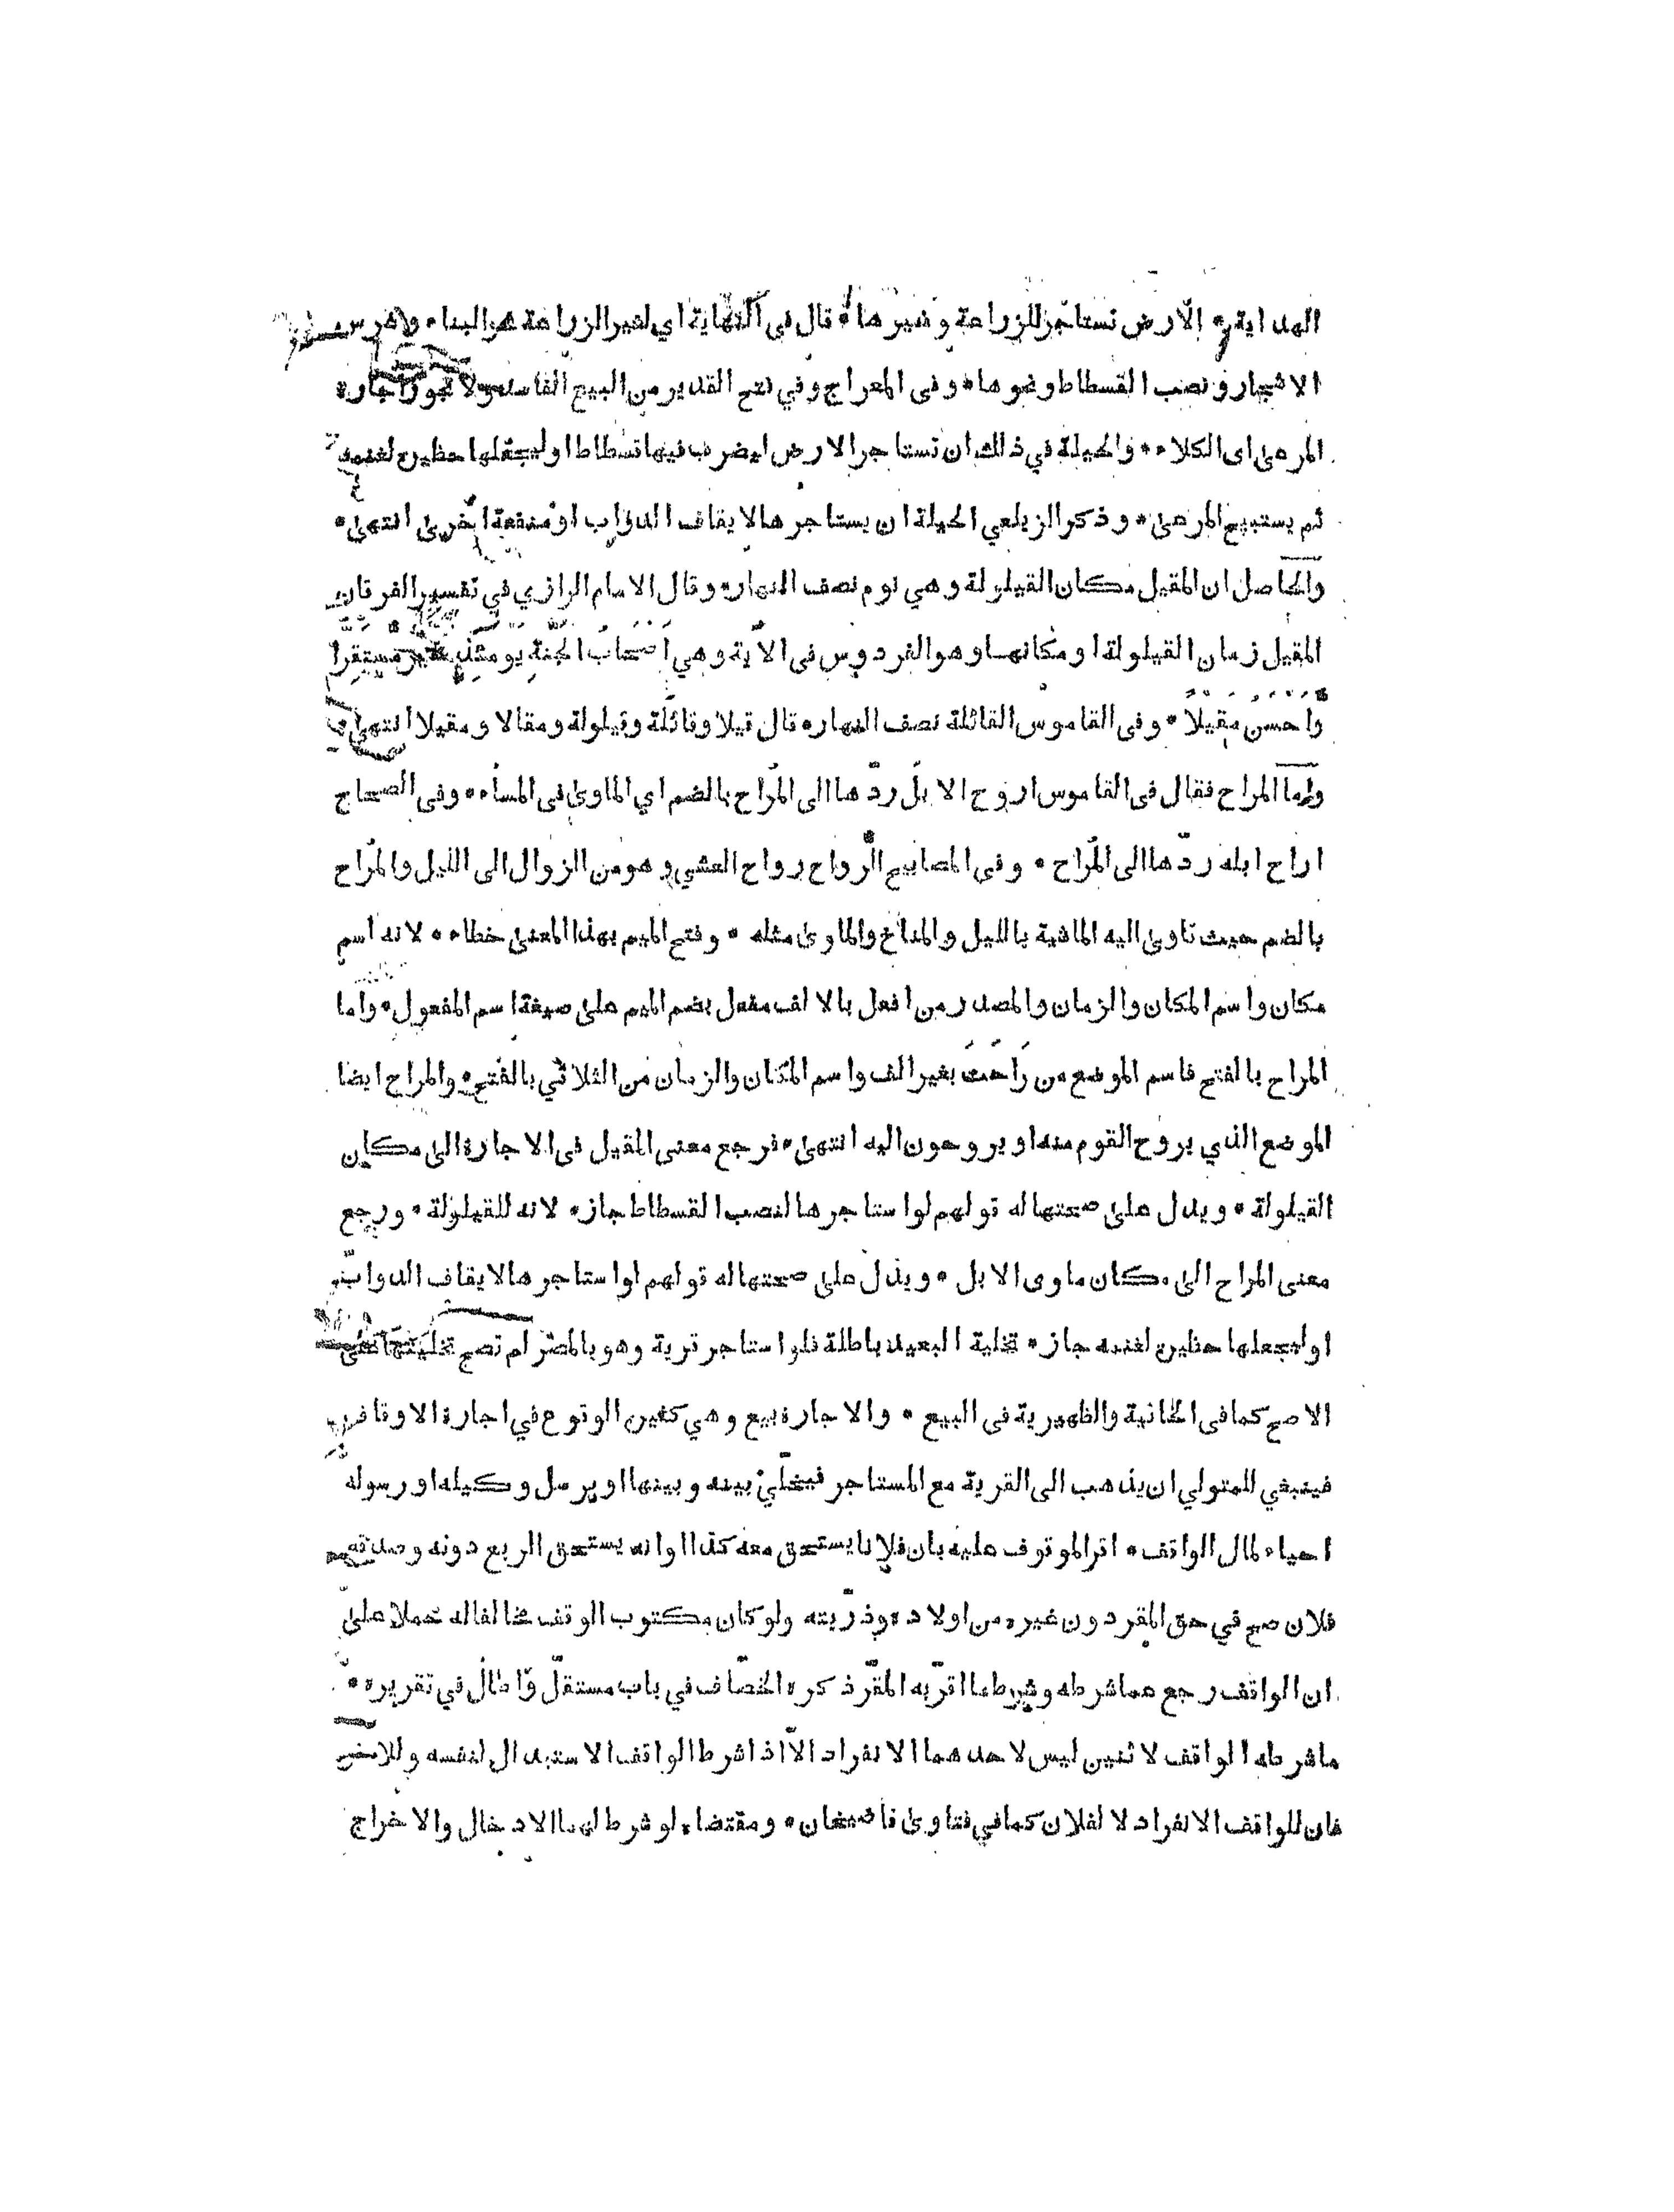 الهداية • الارض تستاجر للزراعة وغيرها • قال فى النهاية اي لغير الزراعة هو البناء • وغرس
الاشجار ونصب القسطاط ونحوها • وفى المعراج وفي فتح القدير من البيع الفاسد ولا تجوز اجارة
المرعىٰ اى الكلاء • والحيلة في ذلك ان تستاجر الارض ليضرب فيها قسطاطا او ليجعلها حظيرة لغنمه
ثم يستبيح المرعىٰ • وذكر الزيلعي الحيلة ان يستاجرها لايقاف الدواب او منفعة اخرىٰ انتهىٰ •
والحاصل ان المقيل مكان القيلولة وهي نوم نصف النهار • وقال الامام الرازي في تفسير الفرقان
المقيل زمان القيلولة او مكانها وهو الفردوس فى الآية وهي اَصْحَابُ الجَنَّةِ يَوْمَئِذٍ خَيْرٌ مُّسْتَقَرًّا
وَّاَحْسَنُ مَقِيْلًا • وفى القاموس القائلة نصف النهار • قال قيلا وقائلة وقيلولة ومقالا ومقيلا انتهىٰ •
واما المراح فقال فى القاموس اروح الابل ردّها الى المُراح بالضم اي الماوىٰ فى المساء • وفى الصحاح
اراح ابله ردّها الى المُراح • وفى المصابيح الرّواح رواح العشي وهو من الزوال الى الليل والمُراح
بالضم حيث تاوىٰ اليه الماشية بالليل والمناخ والماوىٰ مثله • وفتح الميم بهذا المعنىٰ خطاء • لانه اسم
مكان واسم المكان والزمان والمصدر من افعل بالالف مفعل بضم الميم علىٰ صيغة اسم المفعول • واما
المراح بالفتح فاسم الموضع من رَاحَتْ بغير الف واسم المكان والزمان من الثلاثي بالفتح • والمراح ايضا
الموضع الذي يروح القوم منه او يروحون اليه انتهىٰ • فرجع معنى المقيل فى الاجارة الىٰ مكان
القيلولة • ويدل علىٰ صحتها له قولهم لو استاجرها لنصب القسطاط جاز • لانه للقيلولة • ورجع
معنى المراح الىٰ مكان ماوى الابل • ويدل علىٰ صحتها له قولهم لو استاجرها لايقاف الدوابّ
او ليجعلها حظيرة لغنمه جاز • تخلية البعيد باطلة فلو استاجر قرية وهو بالمصر لم تصح تخليتها علىٰ
الاصح كما فى الخانية والظهيرية فى البيع • والاجارة بيع وهي كثيرة الوقوع في اجارة الاوقاف
فينبغي للمتولي ان يذهب الى القرية مع المستاجر فيخلّيٰ بينه وبينها او يرسل وكيله او رسوله
احياء لمال الواقف • اقر الموقوف عليه بان فلانا يستحق معه كذا او انه يستحق الربع دونه وصدقه
فلان صح في حق المقر دون غيره من اولاده وذرّيته ولو كان مكتوب الوقف مخالفا له حملا علىٰ
ان الواقف رجع عما شرطه وشرط ما اقرّ به المقرّ ذكره الخصّاف في باب مستقلّ واطال في تقريره •
ما شرطه الواقف لاثنين ليس لاحدهما الانفراد الاّ اذا شرط الواقف الاستبدال لنفسه وللاخر
فان للواقف الانفراد لا لفلان كما في فتاوىٰ قاضيخان • ومقتضاه لو شرط لهما الادخال والاخراج